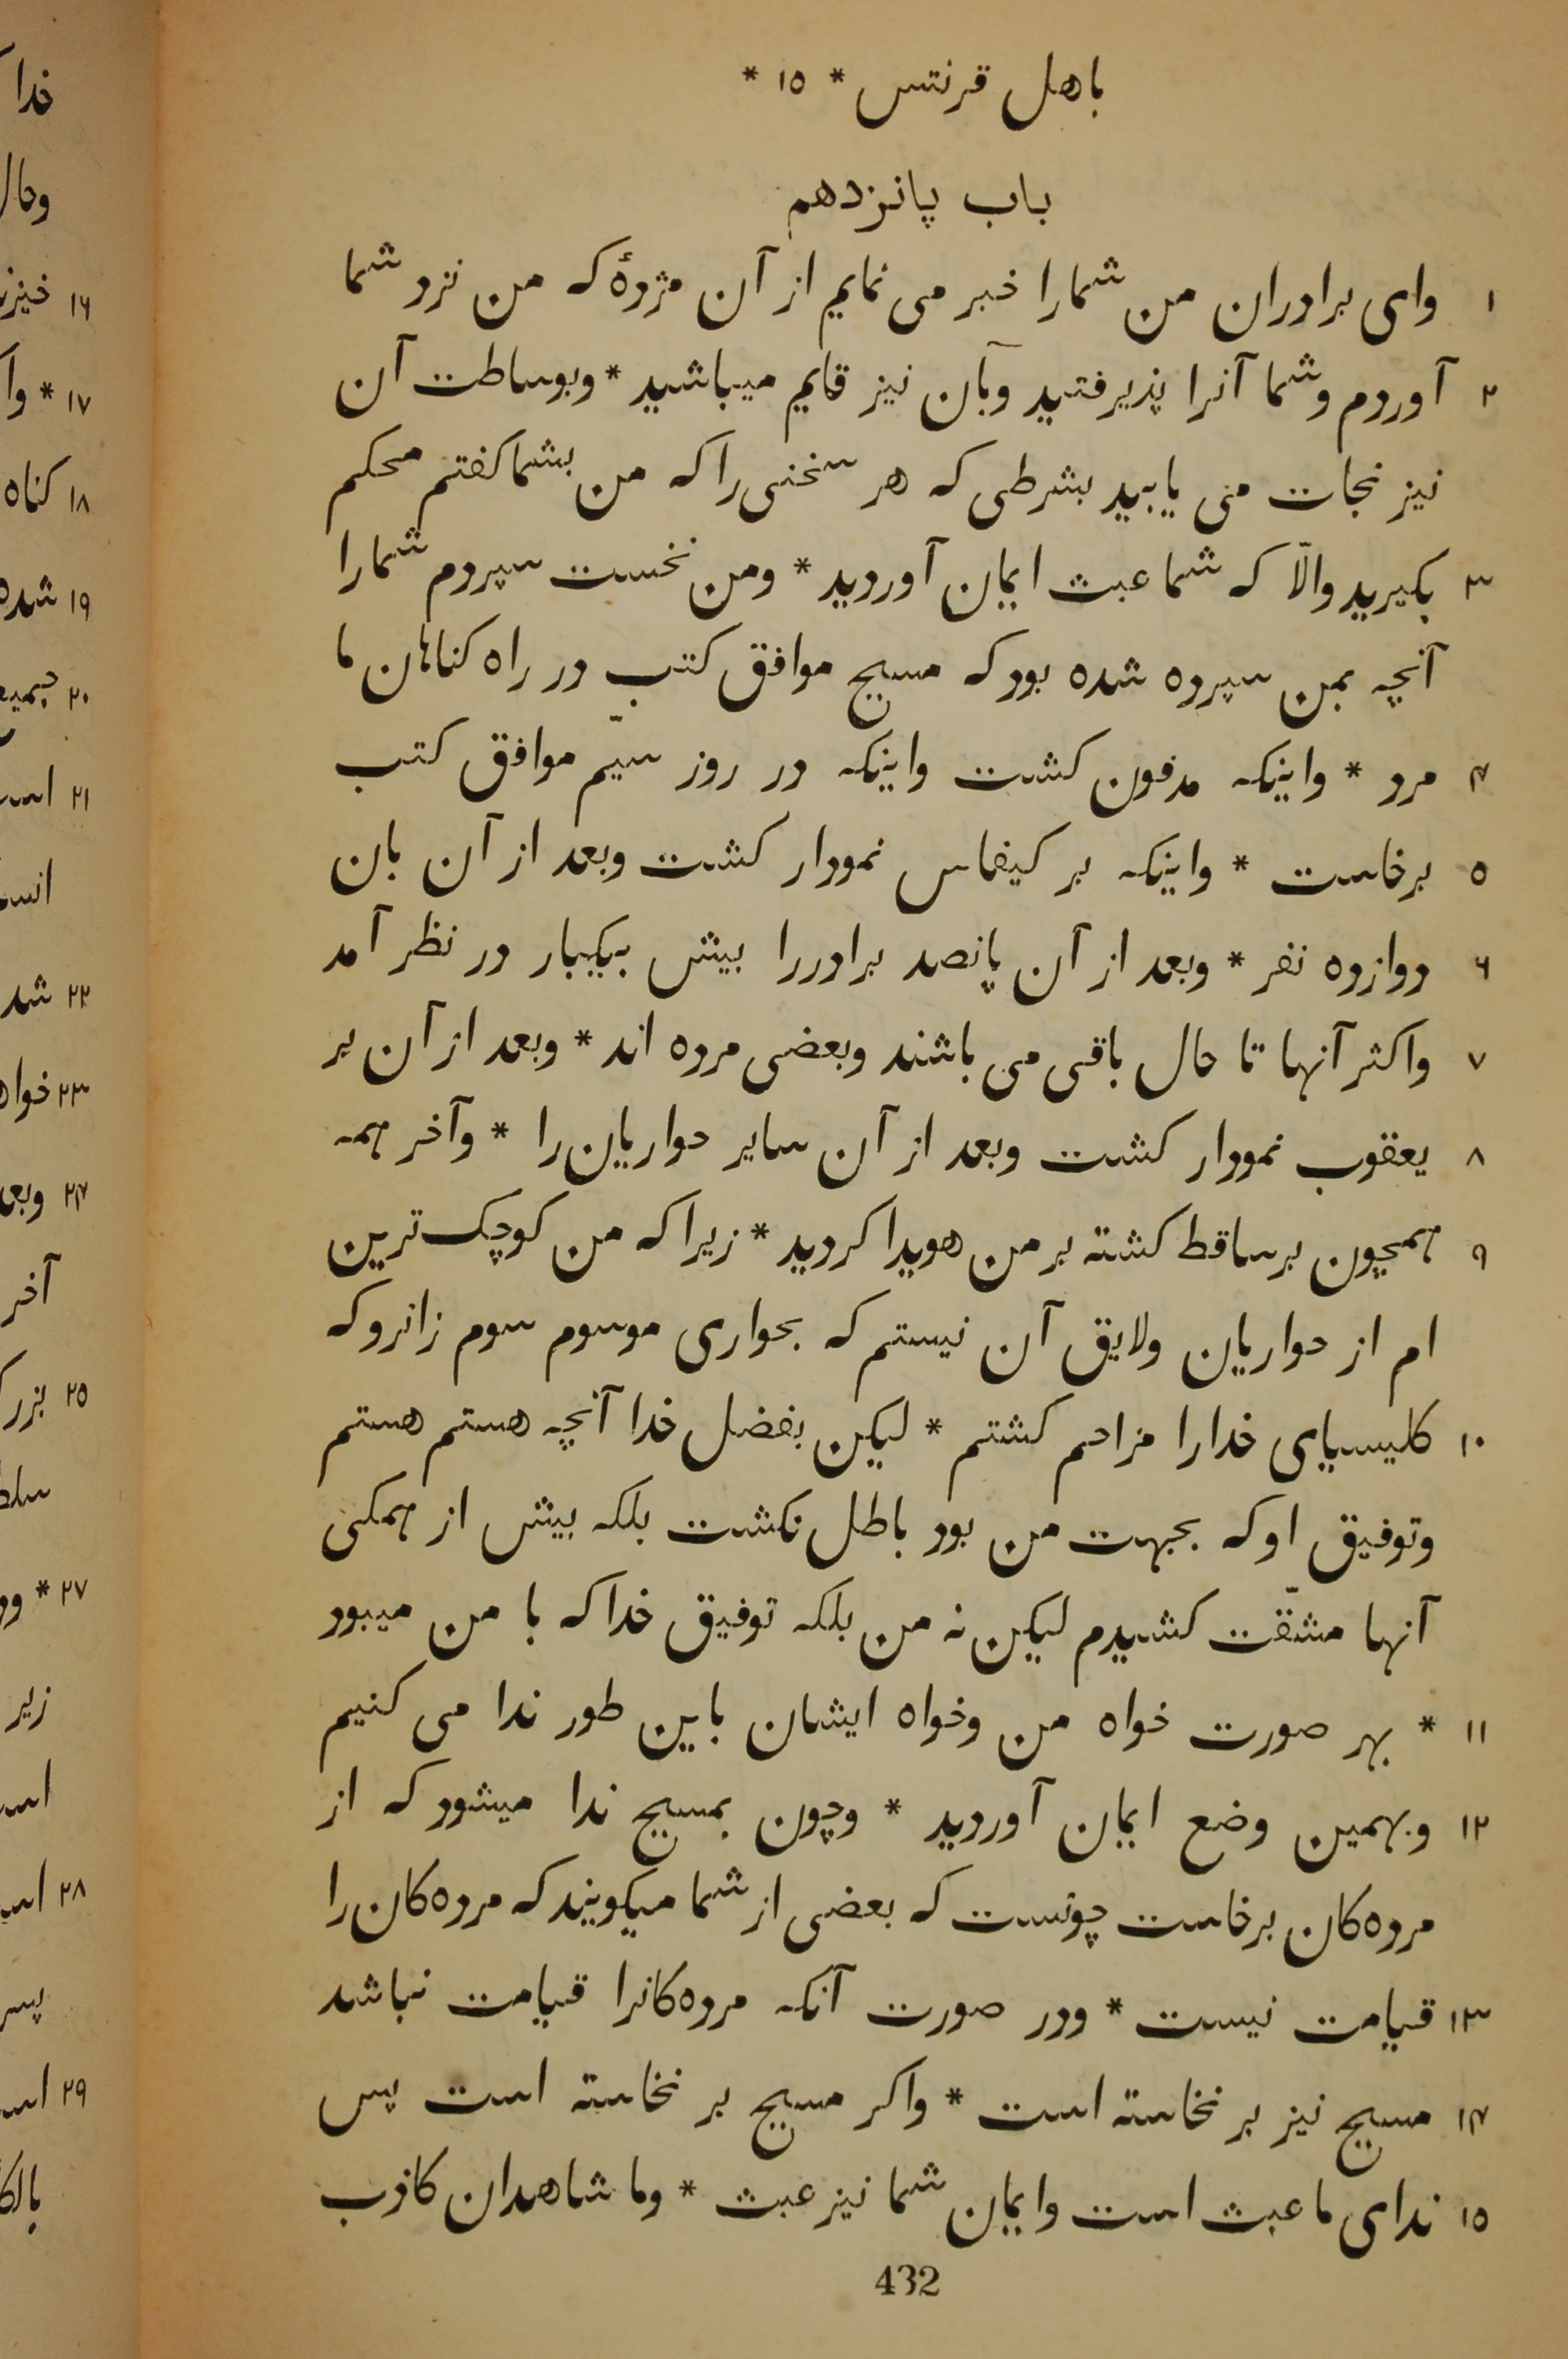 باهل قرنتس * ١٥ *
باب پانزدهم
١ وای برادران من شمارا خبر می نمایم از آن مژدهٔ که من نزد شما
٢ آوردم وشما آنرا پذیرفتید وبآن نیز قایم میباشید * وبوساطت آن
نیز نجات می یابید بشرطی که هر سخنی را که من بشما کفتم محکم
٣ بکیرید والّا که شما عبث ایمان آوردید * ومن نخست سپردم شمارا
آنچه بمن سپرده شده بود که مسیح موافق کتب در راه کناهان ما
۴ مرد * واینکه مدفون کشت واینکه در روز سیّم موافق کتب
٥ برخاست * واینکه بر کیفاس نمودار کشت وبعد از آن بان
۶ دوازده نفر * وبعد از آن پانصد برادررا بیش بیکبار در نظر آمد
٧ واکثر آنها تا حال باقی می باشند وبعضی مرده اند * وبعد از آن بر
٨ یعقوب نمودار کشت وبعد از آن سایر حواریان را * وآخر همه
٩ همچون برساقط کشته بر من هویدا کردید * زیرا که من کوچک ترین
ام از حواریان ولایق آن نیستم که بحواری موسوم سوم زانرو که
١٠ کلیسیای خدارا مزاحم کشتم * لیکن بفضل خدا آنچه هستم هستم
وتوفیق او که بجهت من بود باطل نکشت بلکه بیش از همکی
آنها مشقّت کشیدم لیکن نه من بلکه توفیق خدا که با من میبود
١١ * بهر صورت خواه من وخواه ایشان باین طور ندا می کنیم
١٢ وبهمین وضع ایمان آوردید * وچون بمسیح ندا میشود که از
مرده‌کان برخاست چونست که بعضی از شما میکویند که مرده‌کان را
١٣ قیامت نیست * ودر صورت آنکه مرده‌کانرا قیامت نباشد
١۴ مسیح نیز بر نخاسته است * واکر مسیح بر نخاسته است پس
١٥ ندای ما عبث است وایمان شما نیز عبث * وما شاهدان کاذب
432